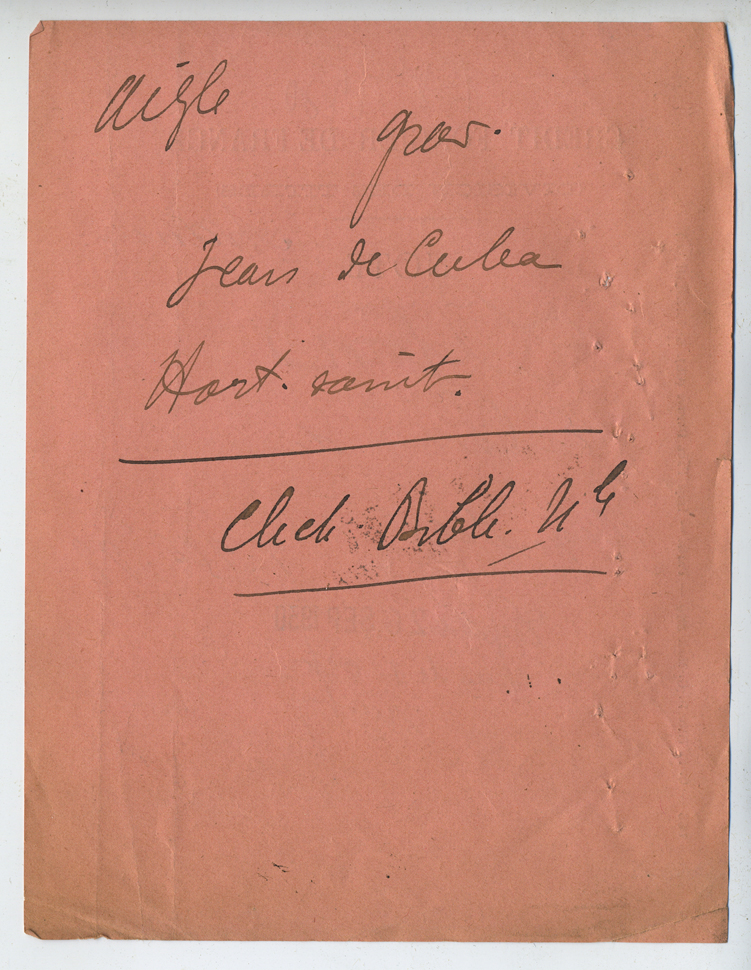 Aigle
grav.
Jean de Cuba
Hort. sanit.
Clich. Bibl. Nle